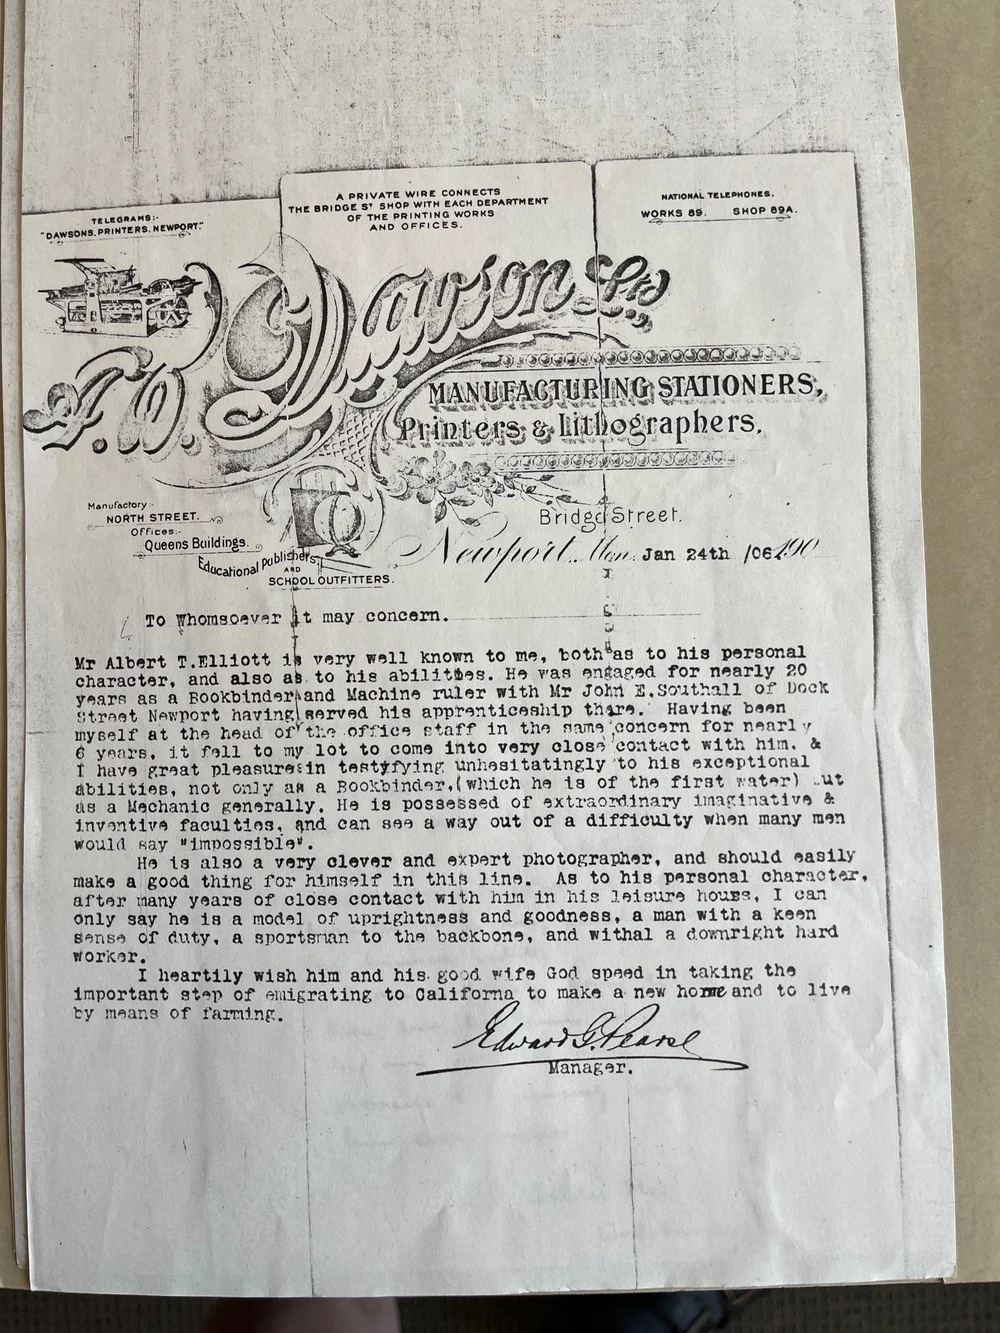 TELEGRAMS:-
"DAWSONS, PRINTERS, NEWPORT."
A PRIVATE WIRE CONNECTS
THE BRIDGE ST SHOP WITH EACH DEPARTMENT
OF THE PRINTING WORKS
AND OFFICES.
NATIONAL TELEPHONES.
WORKS 89. SHOP 89A.
A.W. Dawson Ltd,
MANUFACTURING STATIONERS,
Printers & Lithographers,
Manufactory:-
NORTH STREET.
Offices:-
Queens Buildings.
Educational Publishers,
AND
SCHOOL OUTFITTERS.
Bridge Street,
Newport, Mon. Jan 24th /06 190
To Whomsoever it may concern.
Mr Albert T.Elliott is very well known to me, both as to his personal
character, and also as to his abilities. He was engaged for nearly 20
years as a Bookbinder and Machine ruler with Mr John E.Southall of Dock
Street Newport having served his apprenticeship there. Having been
myself at the head of the office staff in the same concern for nearly
6 years, it fell to my lot to come into very close contact with him, &
I have great pleasure in testyfying unhesitatingly to his exceptional
abilities, not only as a Bookbinder,(which he is of the first water) but
as a Mechanic generally. He is possessed of extraordinary imaginative &
inventive faculties, and can see a way out of a difficulty when many men
would say "impossible".
He is also a very clever and expert photographer, and should easily
make a good thing for himself in this line. As to his personal character,
after many years of close contact with him in his leisure hours, I can
only say he is a model of uprightness and goodness, a man with a keen
sense of duty, a sportsman to the backbone, and withal a downright hard
worker.
I heartily wish him and his good wife God speed in taking the
important step of emigrating to Californa to make a new home and to live
by means of farming.
Edward G. Pearse
Manager.